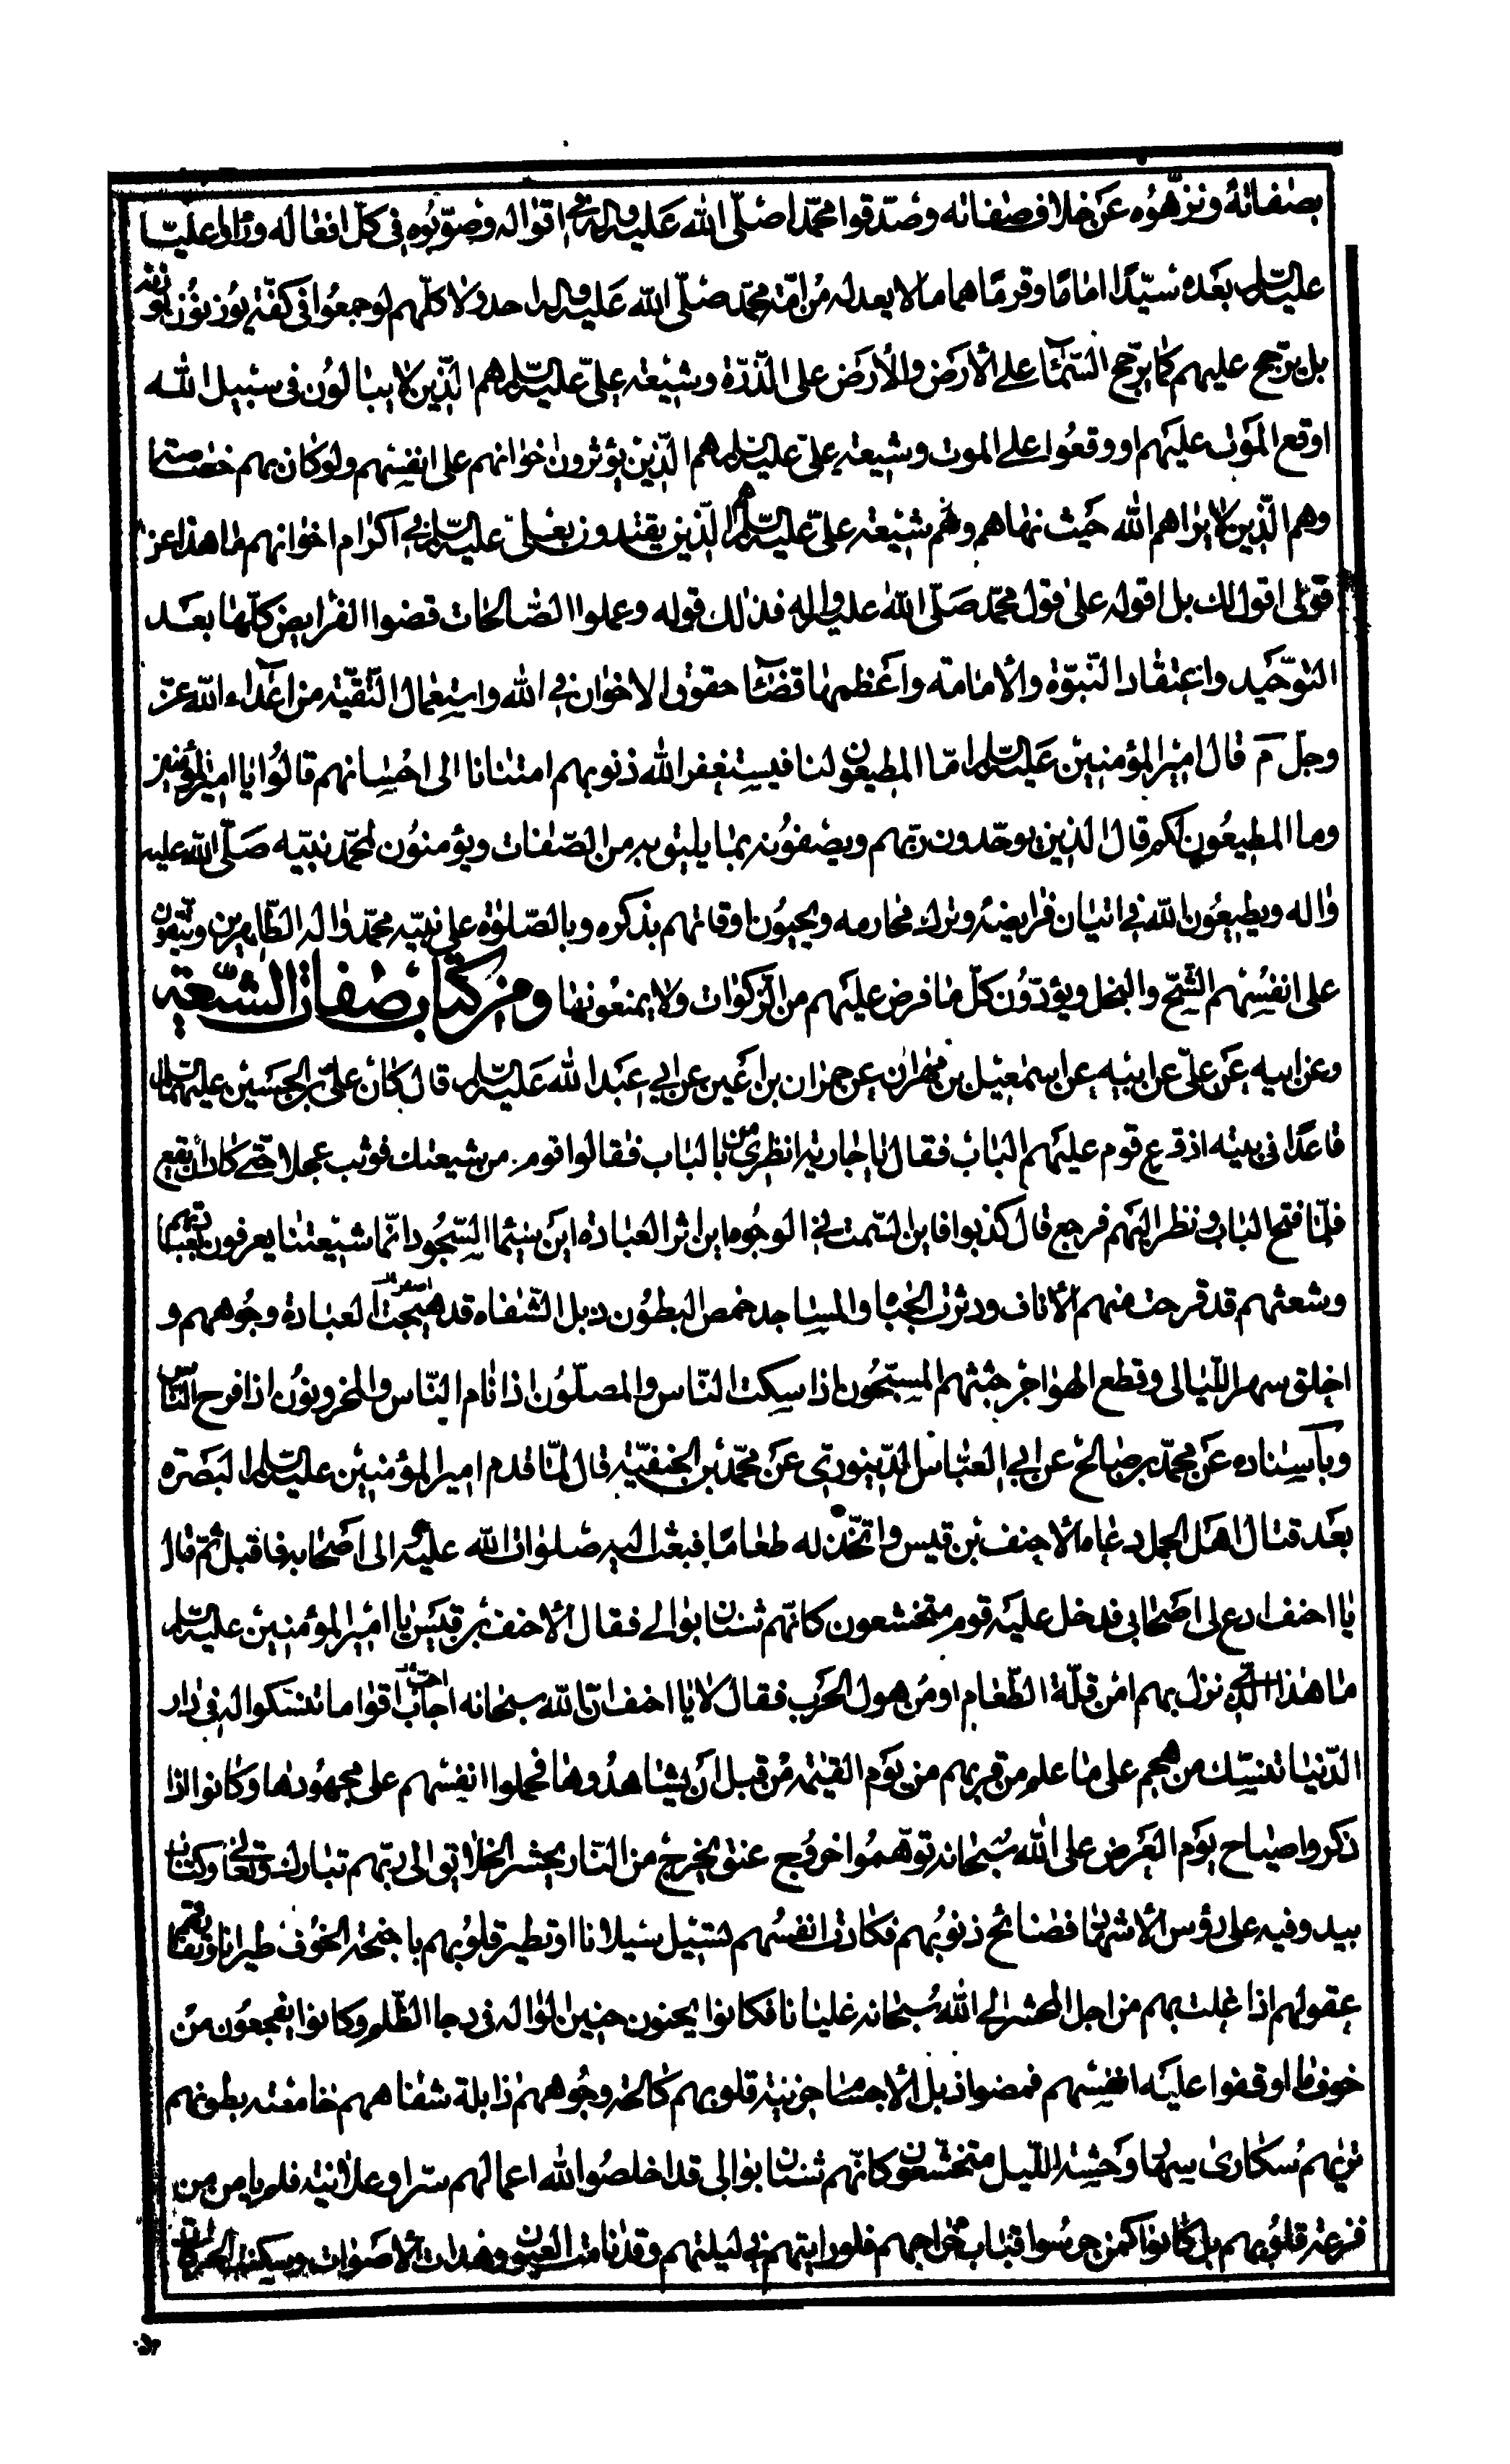 بصفاته ونزهوه عن خلاف صفاته وصدقوا محمدا صلى الله عليه واله في اقواله وصوبوه في كل افعاله وراوا عليا
عليه السلم بعده سيدا اماما وقرما هماما لا يعدله من امة محمد صلى الله عليه واله احد ولا كلهم لو جمعوا في كفة يوزنون بوزنه
بل يرجح عليهم كما يرجح السماء على الأرض والأرض على الذرة وشيعة علي عليه السلم هم الذين لا يبالون في سبيل الله
اوقع الموت عليهم او وقعوا على الموت وشيعة علي عليه السلم هم الذين يؤثرون اخوانهم على انفسهم ولو كان بهم خصاصة
وهم الذين لا يراهم الله حيث نهاهم وهم شيعة علي عليه السلم الذين يقتدون بعلي عليه السلم في اكرام اخوانهم ما هذا عن
قولي اقول لك بل اقوله على قول محمد صلى الله عليه واله فذلك قوله وعملوا الصالحات قضوا الفرايض كلها بعد
التوحيد واعتقاد النبوة والامامة واعظمها قضاء حقوق الاخوان في الله واستعمال التقية من اعداء الله عز
وجل م قال امير المؤمنين عليه السلم اما المطيعون لنا فيستغفر الله ذنوبهم امتنانا الى احسانهم قالوا يا امير المؤمنين
وما المطيعون لكم قال الذين يوحدون ربهم ويصفونه بما يليق به من الصفات ويؤمنون بمحمد نبيه صلى الله عليه
واله ويطيعون الله في اتيان فرايضه وترك محارمه ويحيون اوقاتهم بذكره وبالصلوة على نبيه محمد واله الطاهرين ويتقون
على انفسهم الشح والبخل ويؤدون كل ما فرض عليهم من الزكوات ولا يمنعونها ومن كتاب صفات الشيعة
وعن ابيه عن علي عن ابيه عن اسمعيل بن مهران عن حمران بن اعين عن ابي عبد الله عليه السلم قال كان علي بن الحسين عليهما السلم
قاعدا في بيته اذ قرع قوم عليهم الباب فقال يا جارية انظري من بالباب فقالوا قوم من شيعتك فوثب عجلا حتى كاد ان يقع
فلما فتح الباب ونظر اليهم فرجع قال كذبوا فاين السمت في الوجوه اين اثر العبادة اين سيماء السجود انما شيعتنا يعرفون بعبادتهم
وشعثهم قد قرحت منهم الأناف ودثرت الجباه والمساجد خمص البطون ذبل الشفاه قد هيجت العبادة وجوههم و
اخلق سهر الليالي وقطع الهواجر جثثهم المسبحون اذا سكت الناس والمصلون اذا نام الناس والمحزونون اذا فرح الناس
وباسناده عن محمد بن صالح عن ابي العباس الدينوري عن محمد بن الحنفية قال لما قدم امير المؤمنين عليه السلم البصرة
بعد قتال اهل الجمل دعاه الأحنف بن قيس واتخذ له طعاما فبعث اليه صلوات الله عليه والى اصحابه فاقبل ثم قال
يا احنف ادع لي اصحابي فدخل عليه قوم متخشعون كانهم شنان بوالي فقال الأحنف بن قيس يا امير المؤمنين عليه السلم
ما هذا الذي نزل بهم امن قلة الطعام او من هول الحرب فقال لا يا احنف ان الله سبحانه اجاب اقواما تنسكوا له في دار
الدنيا تنسك من هجم على ما علم من قربهم من يوم القيمة من قبل ان يشاهدوها فحملوا انفسهم على مجهودها وكانوا اذا
ذكروا صباح يوم العرض على الله سبحانه توهموا خروج عنق يخرج من النار يحشر الخلائق الى ربهم تبارك وتعالى وكتاب
يبدو فيه على رؤس الأشهاد فضائح ذنوبهم فكادت انفسهم تسيل سيلانا او تطير قلوبهم باجنحة الخوف طيرانا وتفارقهم
عقولهم اذا غلت بهم من اجل المحشر الى الله سبحانه غليانا فكانوا يحنون حنين الواله في دجا الظلم وكانوا يفجعون من
خوف ما اوقفوا عليه انفسهم فمضوا ذبل الأجسام حزينة قلوبهم كالحة وجوههم ذابلة شفاههم خامصة بطونهم
تريهم سكارى سمار وحشة الليل متخشعون كانهم شنان بوالي قد اخلصوا لله اعمالهم سرا وعلانية فلم يامن من
فزعه قلوبهم بل كانوا كمن حرسوا قباب خراجهم فلو رايتهم في ليلتهم وقد نامت العيون وهدات الأصوات وسكنت الحركات